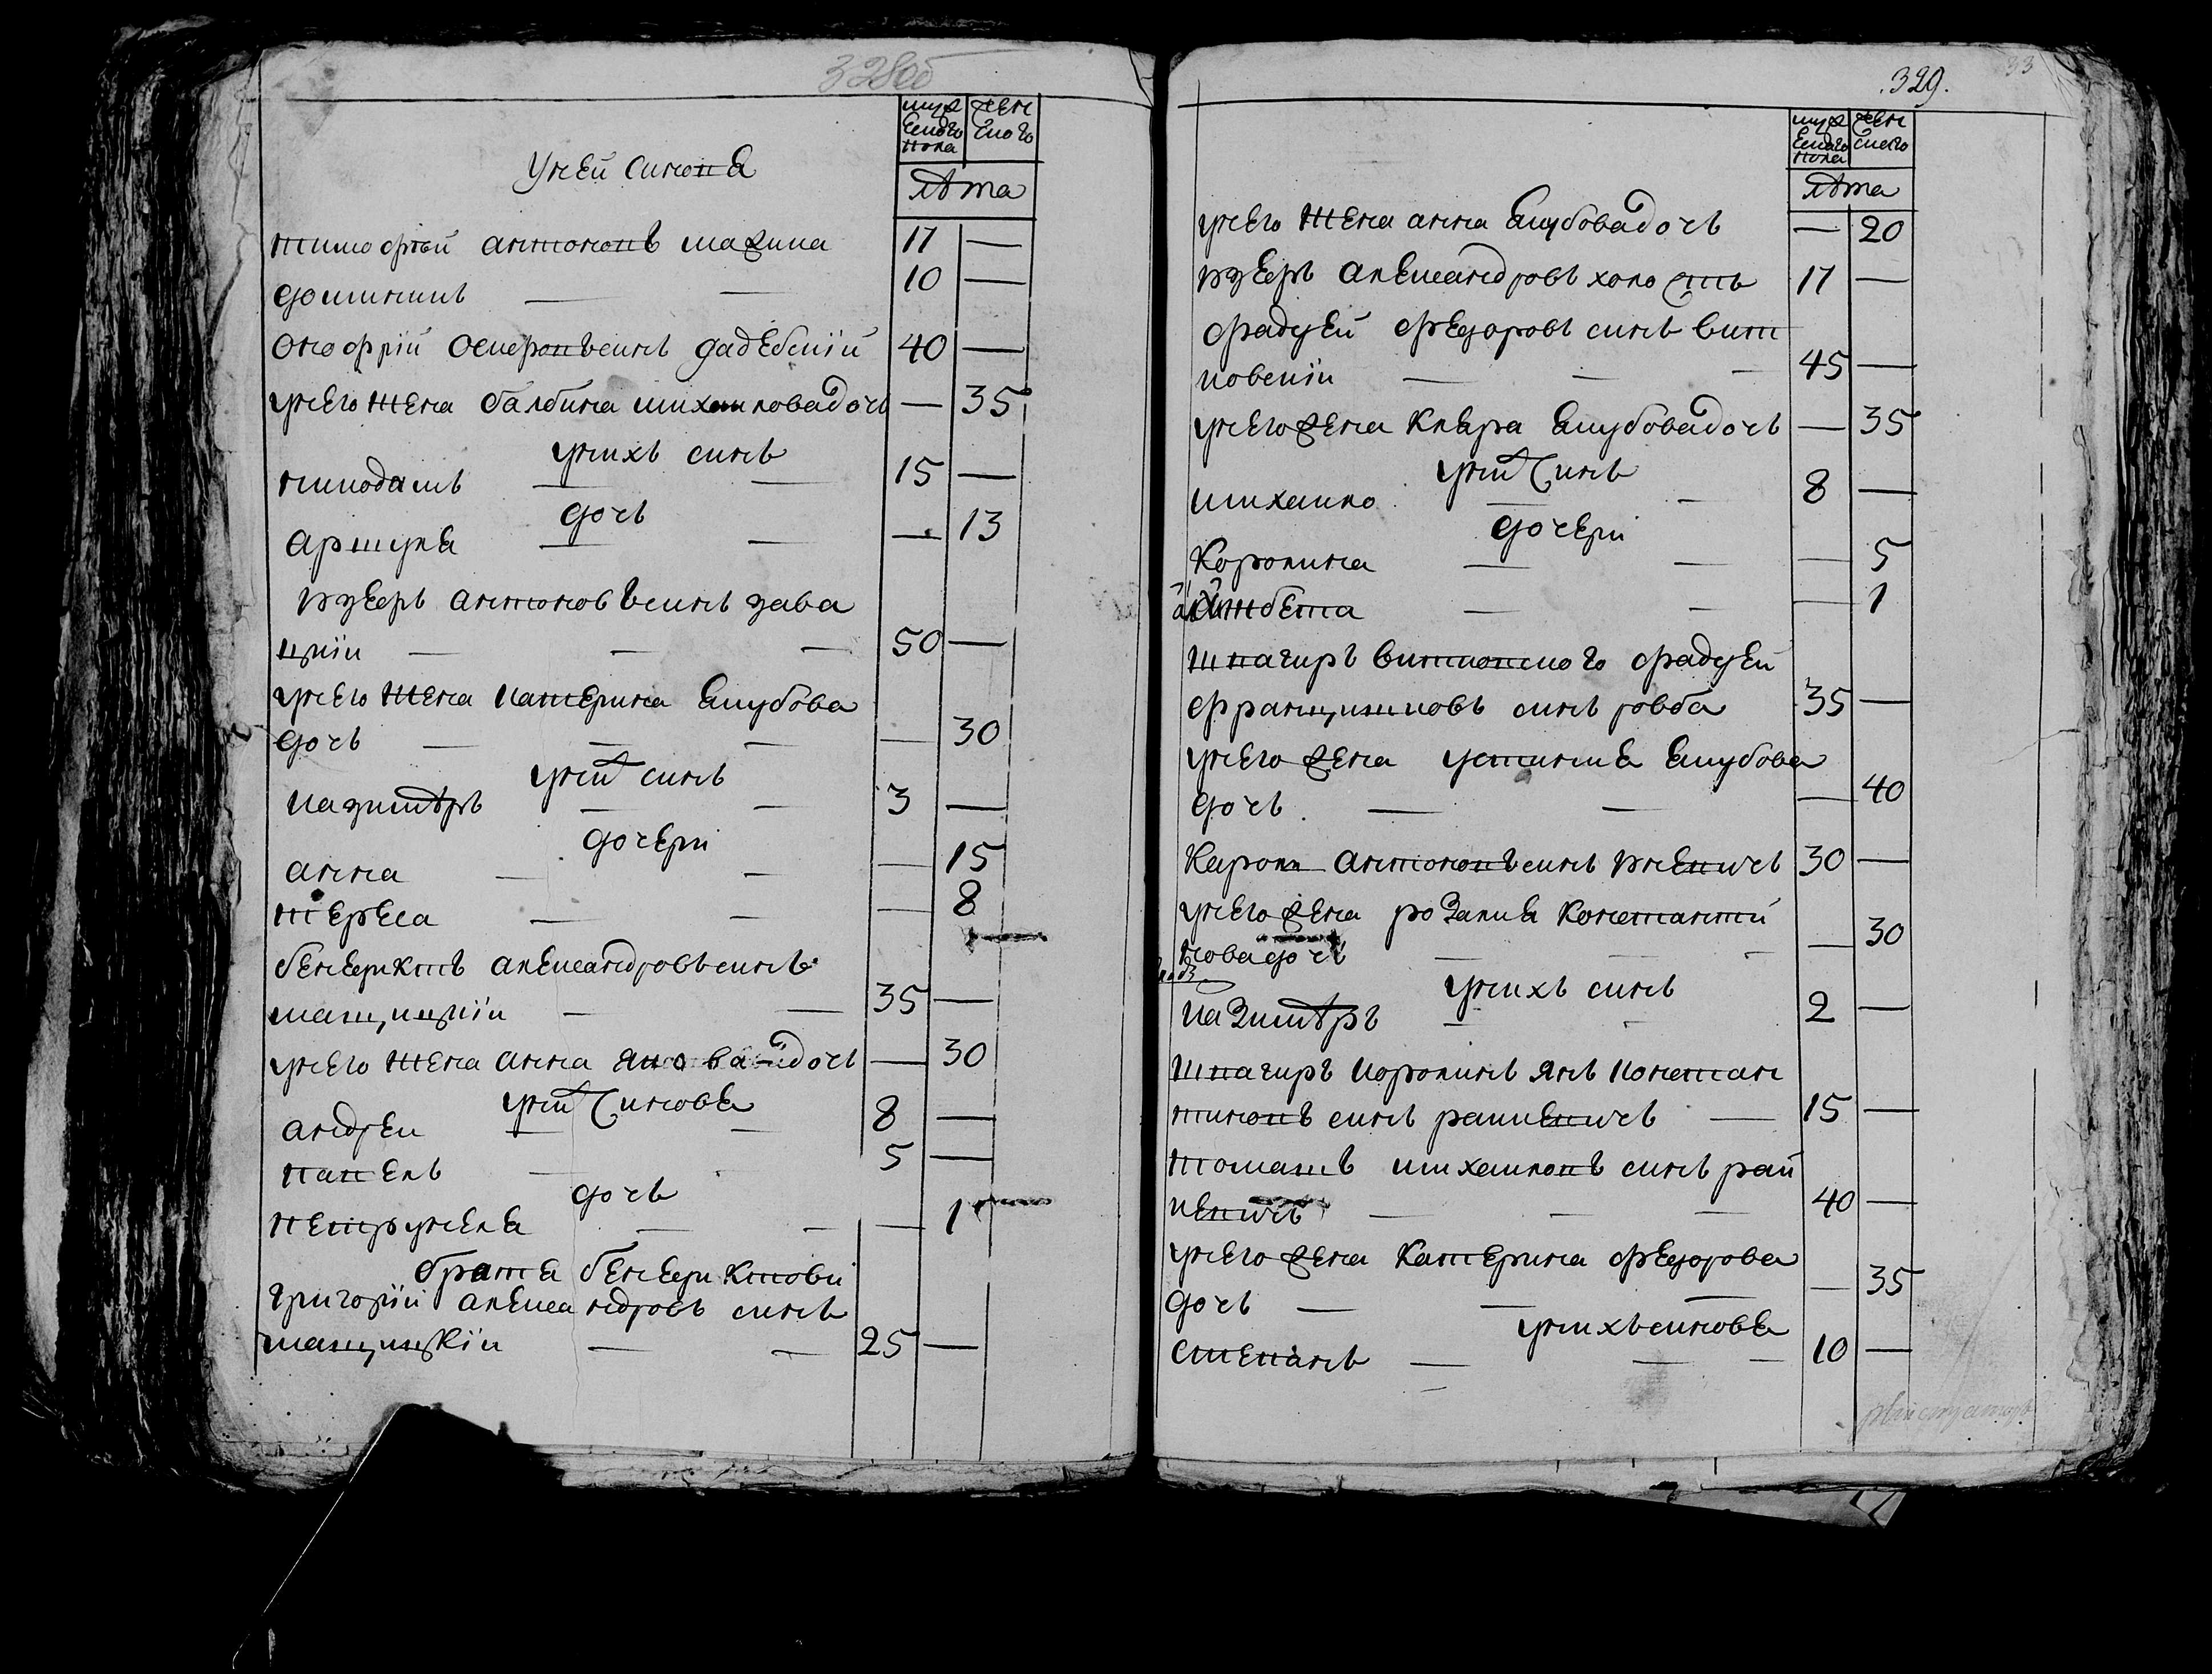 328об
муж ескаго пола
жен скаго
лѣта
уней синовя
тимофѣй антоновъ мазина 17 —
доминикъ — — 10 —
онофрій
синъ
40 —
унего жена балбина михайловадочъ — 35
унихъ синъ
никодимъ — — 15 —
дочъ
аршуля — — — 13
юзефъ антоновъ синъ зава
цкіи — — — 50 —
унего жена катерина якубова
дочъ — — — — 30
унихъ синъ
казимѣръ — — 3 —
дочери
анна — — — 15
тереса — — — 8
бенедиктъ александровъ синъ
мацицкіи — — 35 —
унего жена анна янова дочъ — 30
унихъ синовя
андреи — — 8 —
павелъ — 5 —
дочъ
петрунеля — — — 1
братя бенедиктови
григорій александровъ синъ
мацицкіи — — 25 —
329.
33
муж ескаго пола
жен скаго
лѣта
унего жена анна якубовадочъ — 20
юзефъ александровъ холостъ 17 —
фадѣей федоровъ синъ вит
ковскіи — — — 45 —
унего жена кляра якубовадочъ — 35
унихъ синъ
михаило — — 8 —
дочери
каролина — — — 5
— — — 1
шпагиръ витковского фадѣей
францишковъ синъ 35 —
унего жена устиния якубова
дочъ — — — 40
кароль антоновъ синъ 30 —
унего жена розалия константи
новадочъ — — — — 30
унихъ синъ
казимѣръ — — 2 —
шпагиръ каролинъ янъ констан
тиновъ синъ — 15 —
томашъ михаиловъ синъ рай
кевичъ — — — 40 —
унего жена катерина федорова
дочъ — — — — 35
унихъ синовя
степанъ — — — 10 —